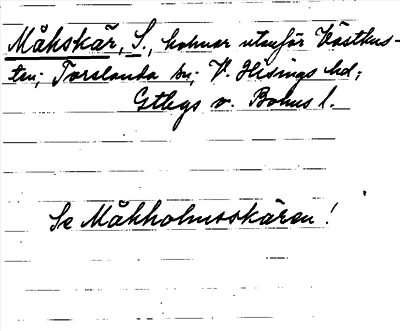 Måkskär, S., holmar utanför Västkus-
ten; Torslanda sn; V. Hisings hd;
Gtbgs o. Bohus l.
Se Måkholmsskären!